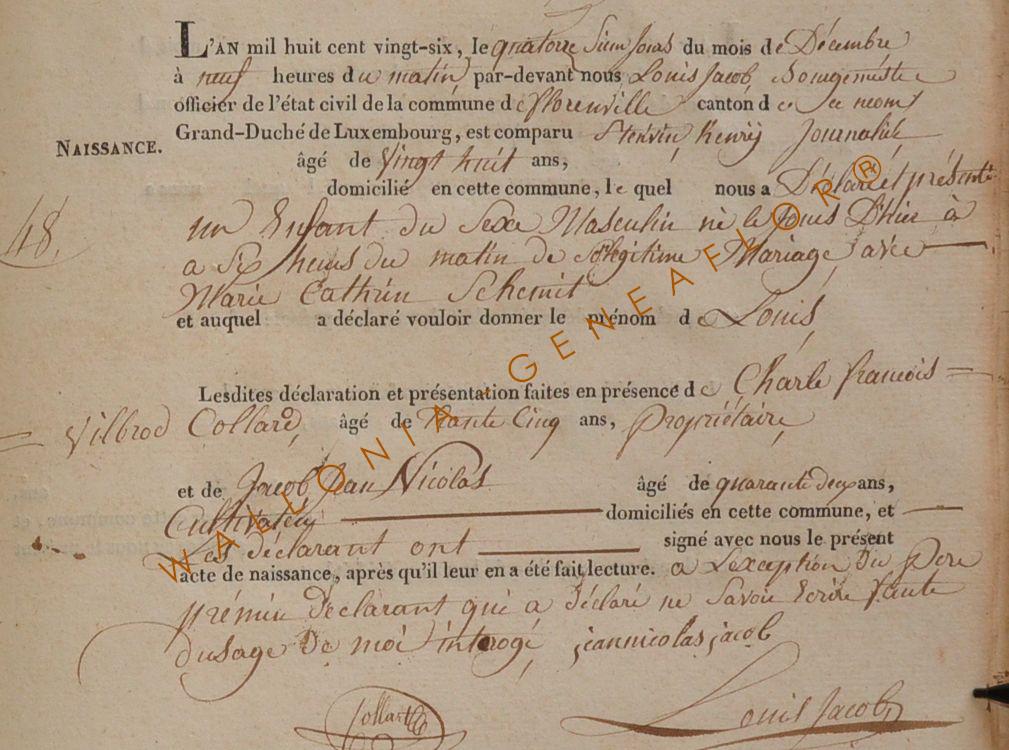 L'AN mil huit cent vingt-six, le quatorzieme jour du mois de Décembre
à neuf heures du matin, par-devant nous Louis Jacob Bourgemestre
officier de l'état civil de la commune de florenville canton d
Grand-Duché de Luxembourg, est comparu henrÿ Journalié
NAISSANCE.
âgé de Vingt huit ans,
domicilié en cette commune, le quel nous a Déclaré et présenté
48.
un Enfant du Sexe Masculin né le jours D'hier à
a Six heurs du matin de légitime Mariage avec
Marie Cathrin Schemit
et auquel a déclaré vouloir donner le prénom de Louis,
Lesdites déclaration et présentation faites en présence de Charle francois =
= Vilbrod Collard, âgé de trante Cinq ans, propriétaire,
et de Jacob Jean Nicolas âgé de quarante deux ans,
Cultivateur domiciliés en cette commune, et
Les déclarant ont signé avec nous le présent
acte de naissance, après qu'il leur en a été fait lecture. a Lexception Du pere
prémie Déclarant qui a déclaré ne Savoir Ecrire faute
dusage De moi interogé, jeannicolas jacob
Collard Louis Jacob
WALLONIA - GENEAFLOR®